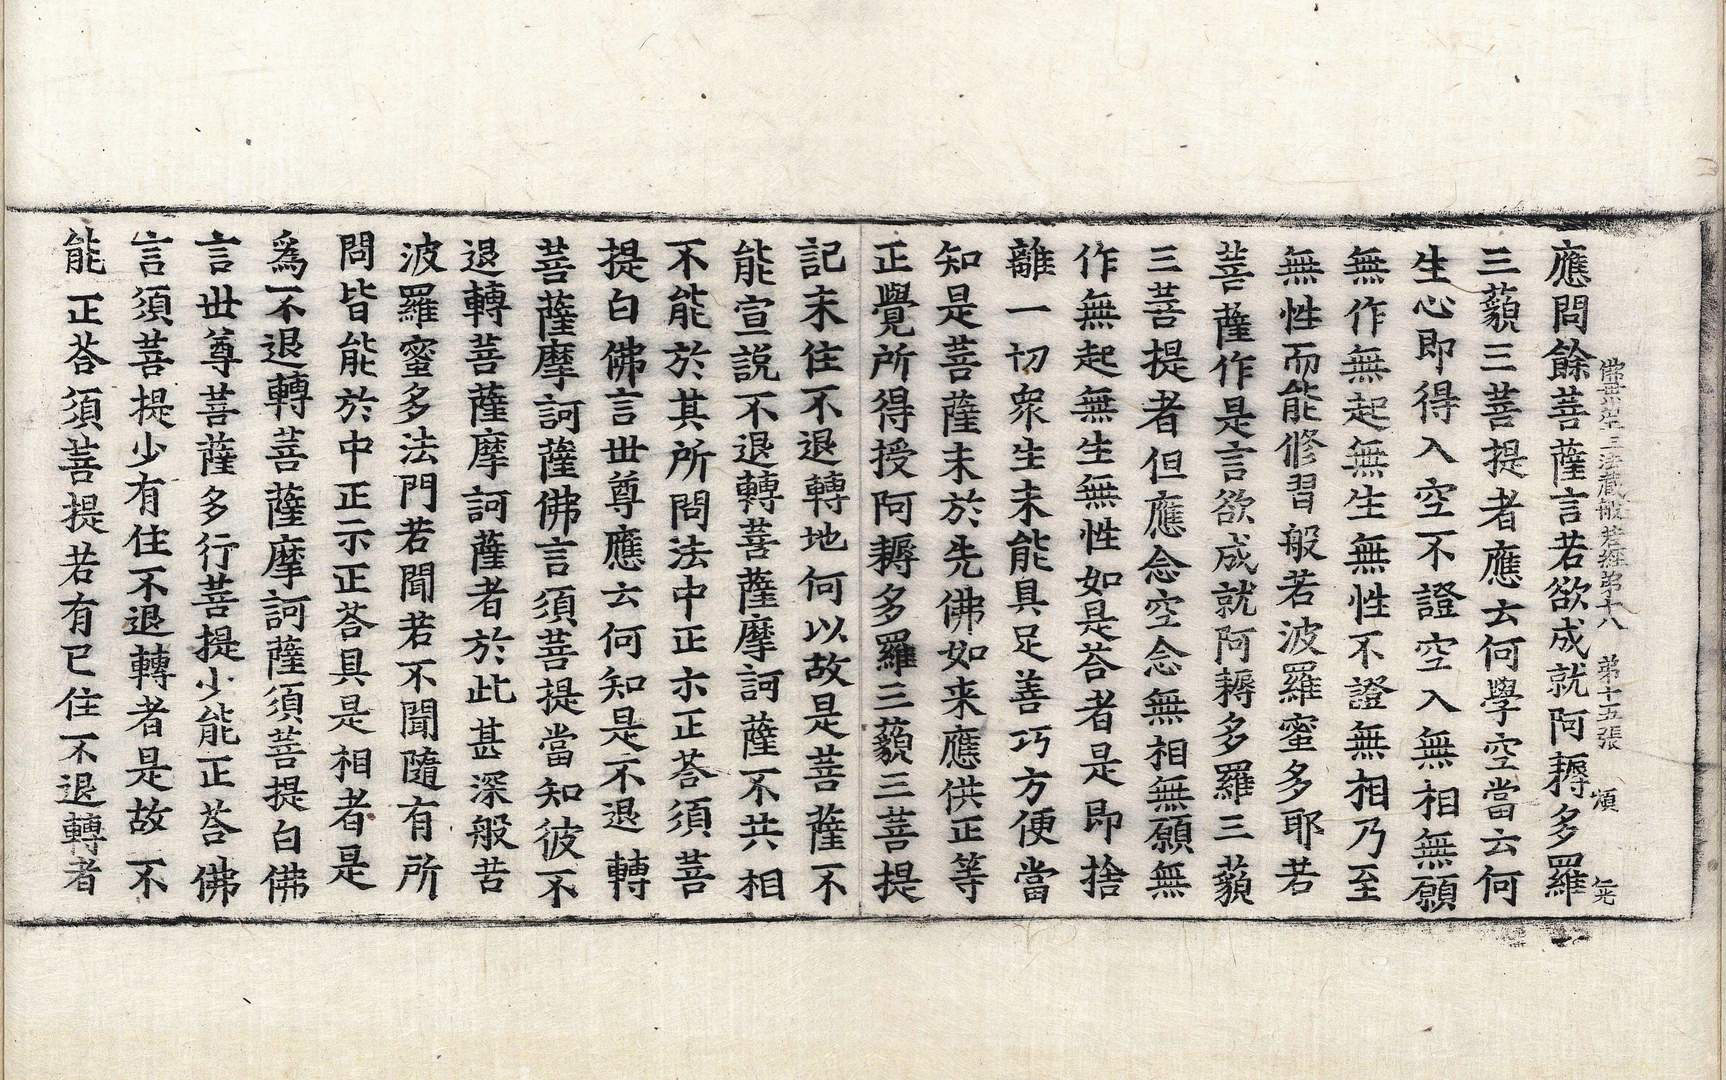 應問餘菩薩言若欲成就阿耨多羅
三藐三菩提者應云何學空當云何
生心即得入空不證空入無相無願
無作無起無生無性不證無相乃至
無性而能修習般若波羅蜜多耶若
菩薩作是言欲成就阿耨多羅三藐
三菩提者但應念空念無相無願無
作無起無生無性如是荅者是即捨
離一切衆生未能具足善巧方便當
知是菩薩未於先佛如来應供正等
正覺所得授阿耨多羅三藐三菩提
記未住不退轉地何以故是菩薩不
能宣説不退轉菩薩摩訶薩不共相
不能於其所問法中正示正荅須菩
提白佛言世尊應云何知是不退轉
菩薩摩訶薩佛言須菩提當知彼不
退轉菩薩摩訶薩者於此甚深般若
波羅蜜多法門若聞若不聞隨有所
問皆能於中正示正荅具是相者是
為不退轉菩薩摩訶薩須菩提白佛
言世尊菩薩多行菩提少能正荅佛
言須菩提少有住不退轉者是故不
能正荅須菩提若有已住不退轉者